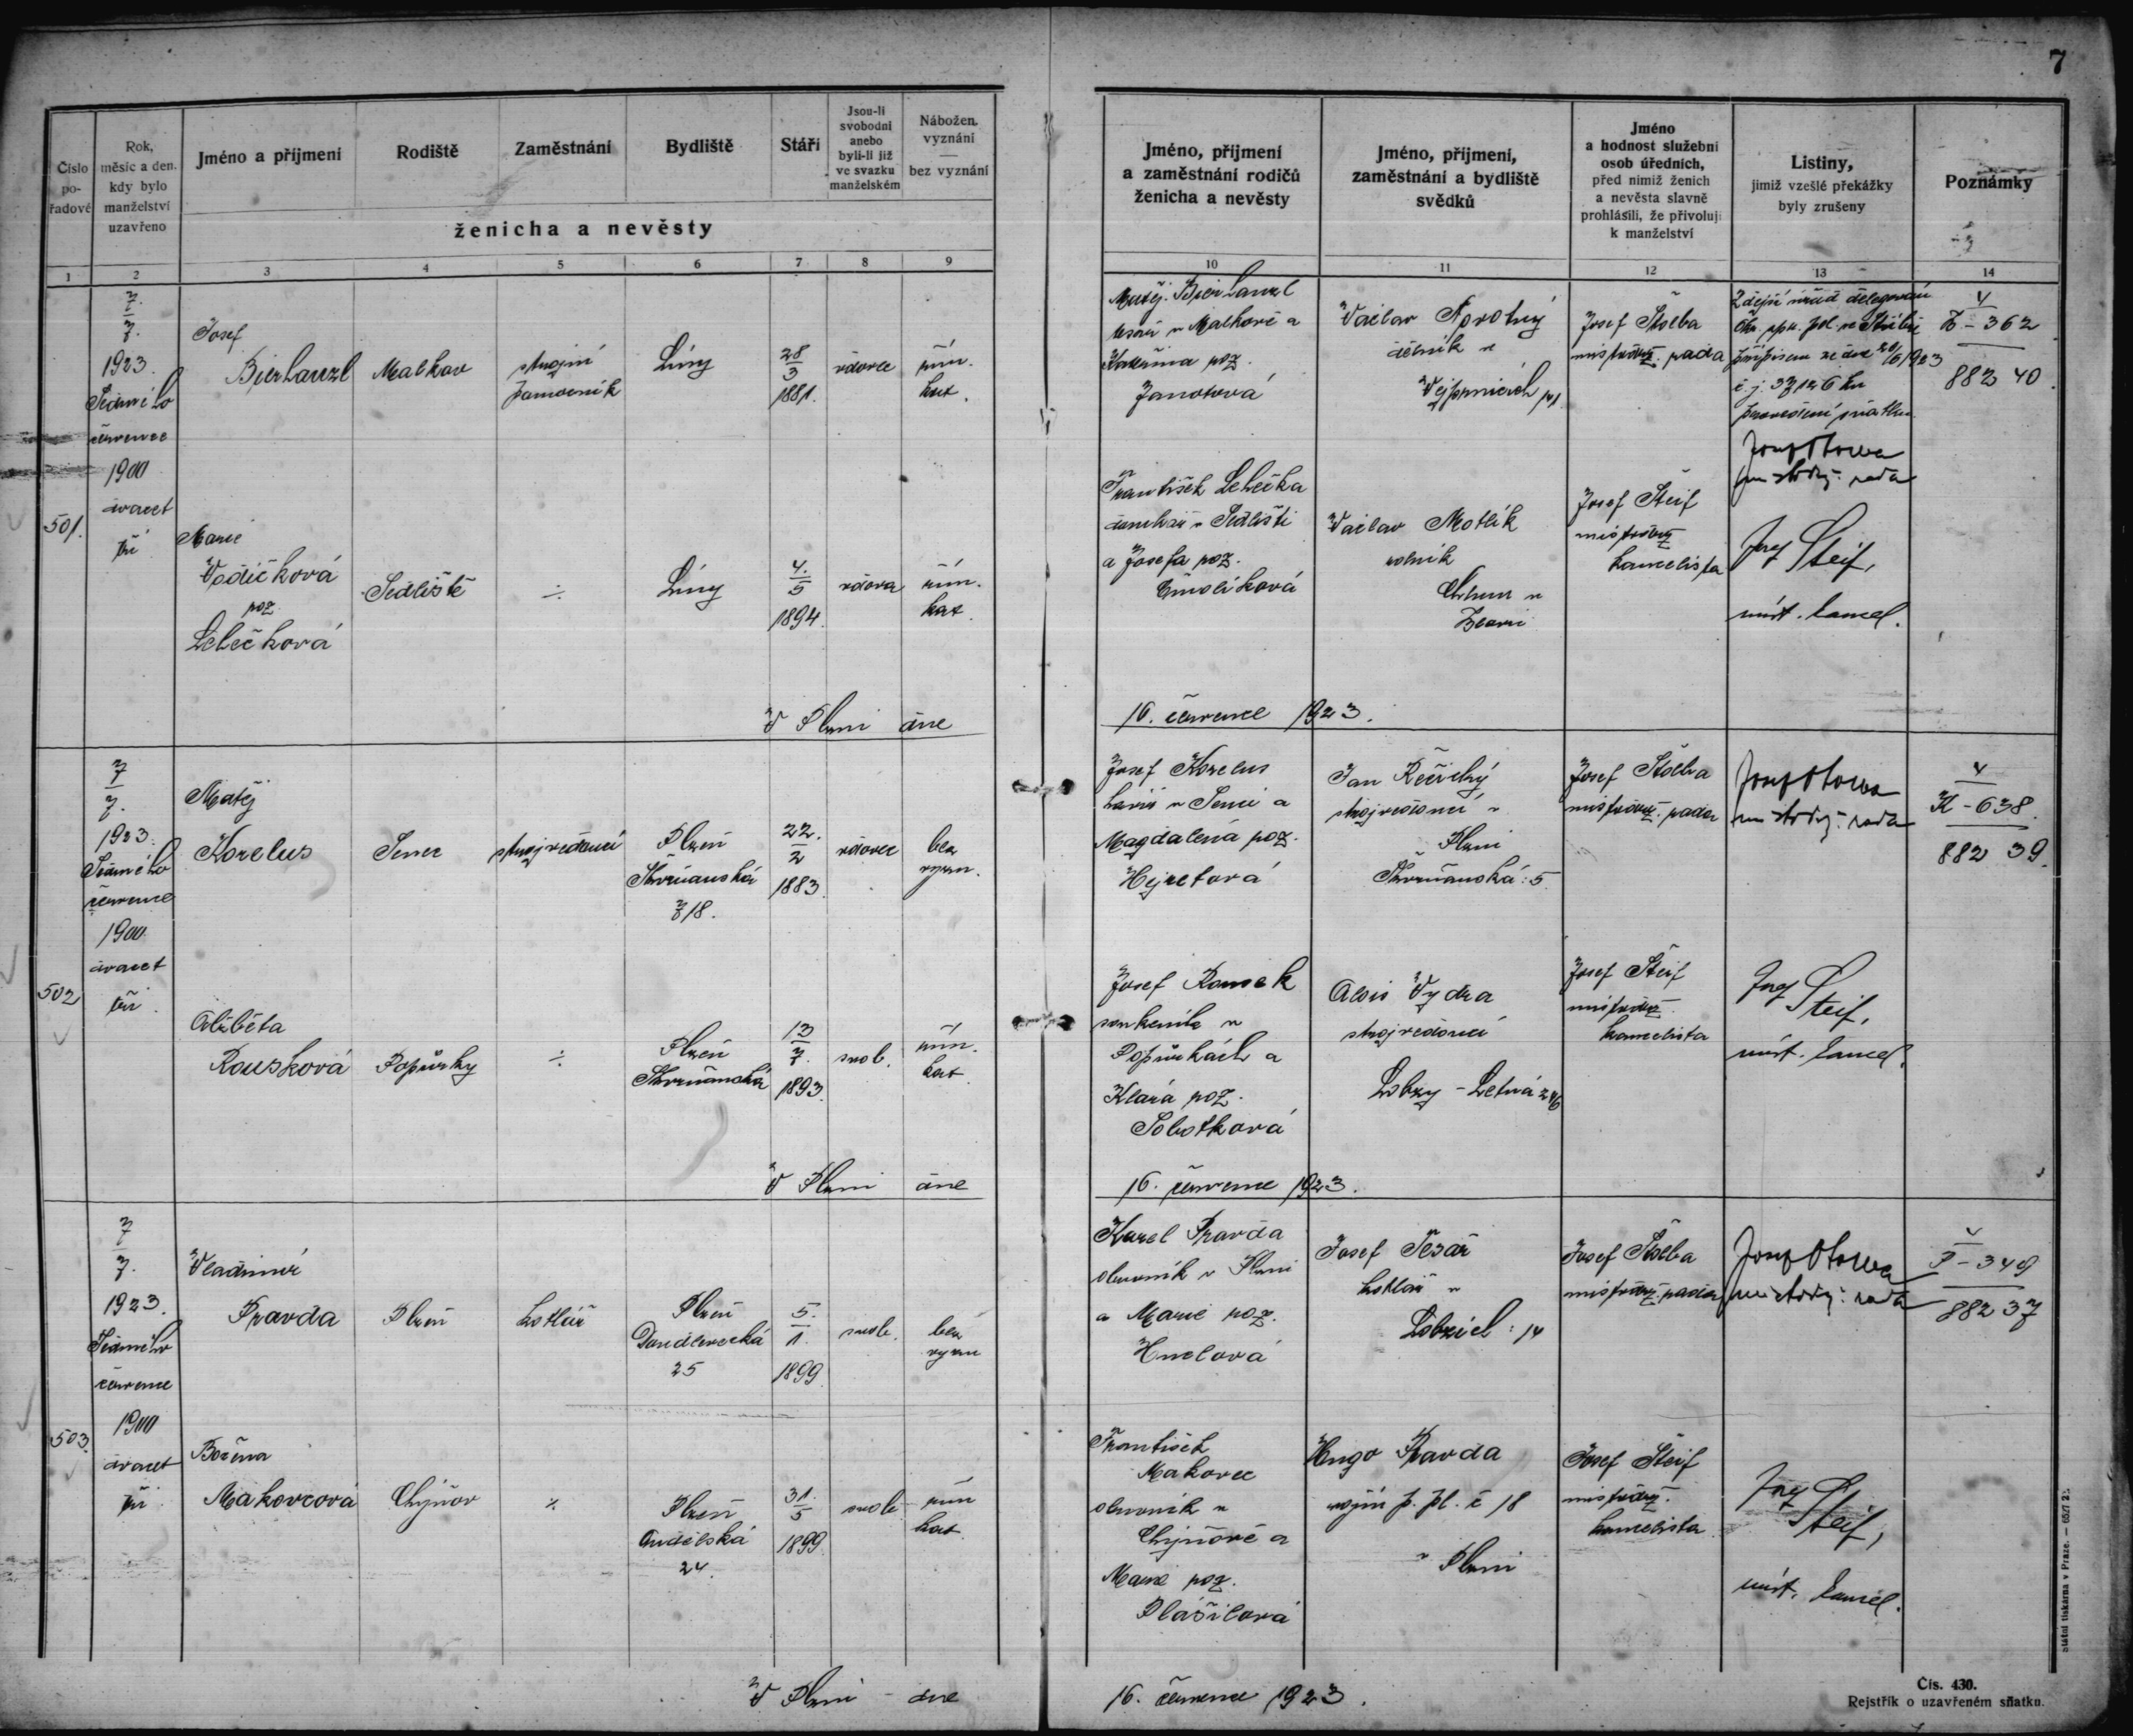 7
Číslo pořadové
Rok, měsíc a den, kdy bylo manželství uzavřeno
Jméno a příjmení
Rodiště
Zaměstnání
Bydliště
Stáří
Jsou-li svobodni anebo byli-li již ve svazku manželském
Nábožen. vyznání — bez vyznání
ženicha a nevěsty
Jméno, příjmení a zaměstnání rodičů ženicha a nevěsty
Jméno, příjmení, zaměstnání a bydliště svědků
Jméno a hodnost služební osob úředních, před nimiž ženich a nevěsta slavně prohlásili, že přivolují k manželství
Listiny, jimiž vzešlé překážky byly zrušeny
Poznámky
1 2 3 4 5 6 7 8 9 10 11 12 13 14
501.
7.
7.
1923.
Sedmého
července
1900
dvacet
tři
Josef
Bierhanzl
Malkov
strojní
zámočník
Líny
28
3
1881.
vdovec
řím.
kat.
Matěj Bierhanzl
v Malkově a
Kateřina roz.
Janotová
Václav
dělník v
Vejprnicích
Josef Štolba
místodrž. rada
Zdejší úřad delegován
přípisem ze dne
1923
č. j.
provedení sňatku
Ž - 362
882 40.
Marie
Vodičková
roz.
Lehečková
Sedliště
÷
Líny
4.
5
1894.
vdova
řím.
kat.
František Lehečka
v Sedlišti
a Josefa roz.
Smolíková
Václav Motlík
rolník
Josef Šteif
místodrž.
kancelista
Šteif,
míst. kancel.
V Plzni dne
16. července 1923.
502
7
7.
1923.
Sedmého
července
1900
dvacet
tři.
Matěj
Korelus
Senec
strojvedoucí
Plzeň
Skvrňanská
718.
22.
2
1883.
vdovec
bez
vyzn.
Josef Korelus
v Senci a
Magdalena roz.
Hejretová
Jan Řeřichý
strojvedoucí v
Plzni
Skvrňanská: 5.
Josef Štolba
místodrž. rada
Ž
K - 638.
882 39.
Alžběta
Rousková
Popůvky
÷
Plzeň
Skvrňanská
13
7.
1893.
svob.
řím.
kat.
Josef Rousek
soukeník v
Popůvkách a
Klára roz.
Sobotková
Alois Vydra
strojvedoucí
Lobzy - Letná 246
Josef Šteif
místodrž.
kancelista
Šteif,
míst. kancel.
V Plzni dne
16. července 1923.
503.
7
7.
1923.
Sedmého
července
1900
dvacet
tři.
Vladimír
Pravda
Plzeň
kotlář
Plzeň
Doudlevecká
25
5.
1
1899.
svob.
bez
vyzn
Karel Pravda
obuvník v Plzni
a Marie roz.
Hnelová
Josef Tesař
kotlář v
: 14
Josef Štolba
místodrž. rada
P - 349
882 37
Božena
Makovcová
Chýnov
÷
Plzeň
Andělská
24.
31.
5
1899.
svob.
řím
kat.
František
Makovec
obuvník v
Chýnově a
Marie roz.
Plášilová
Hugo Pravda
vojín p. pl. č 18
v Plzni
Josef Šteif
místodrž.
kancelista
Šteif,
míst. kancel.
V Plzni - dne
16. července 1923.
Čís. 430.
Rejstřík o uzavřeném sňatku.
státní tiskárna v Praze.